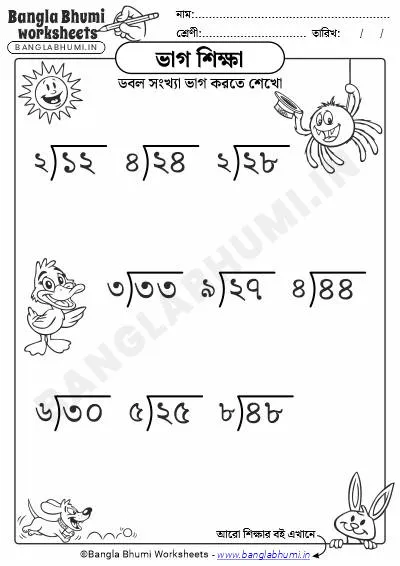 Bangla Bhumi
worksheets
BANGLABHUMI.IN
নাম:
শ্রেণী: তারিখ: / /
ভাগ শিক্ষা
ডবল সংখ্যা ভাগ করতে শেখো
২)১২ ৪)২৪ ২)২৮
৩)৩৩ ৯)২৭ ৪)৪৪
৬)৩০ ৫)২৫ ৮)৪৮
BANGLABHUMI.IN
আরো শিক্ষার বই এখানে
©Bangla Bhumi Worksheets - www.banglabhumi.in